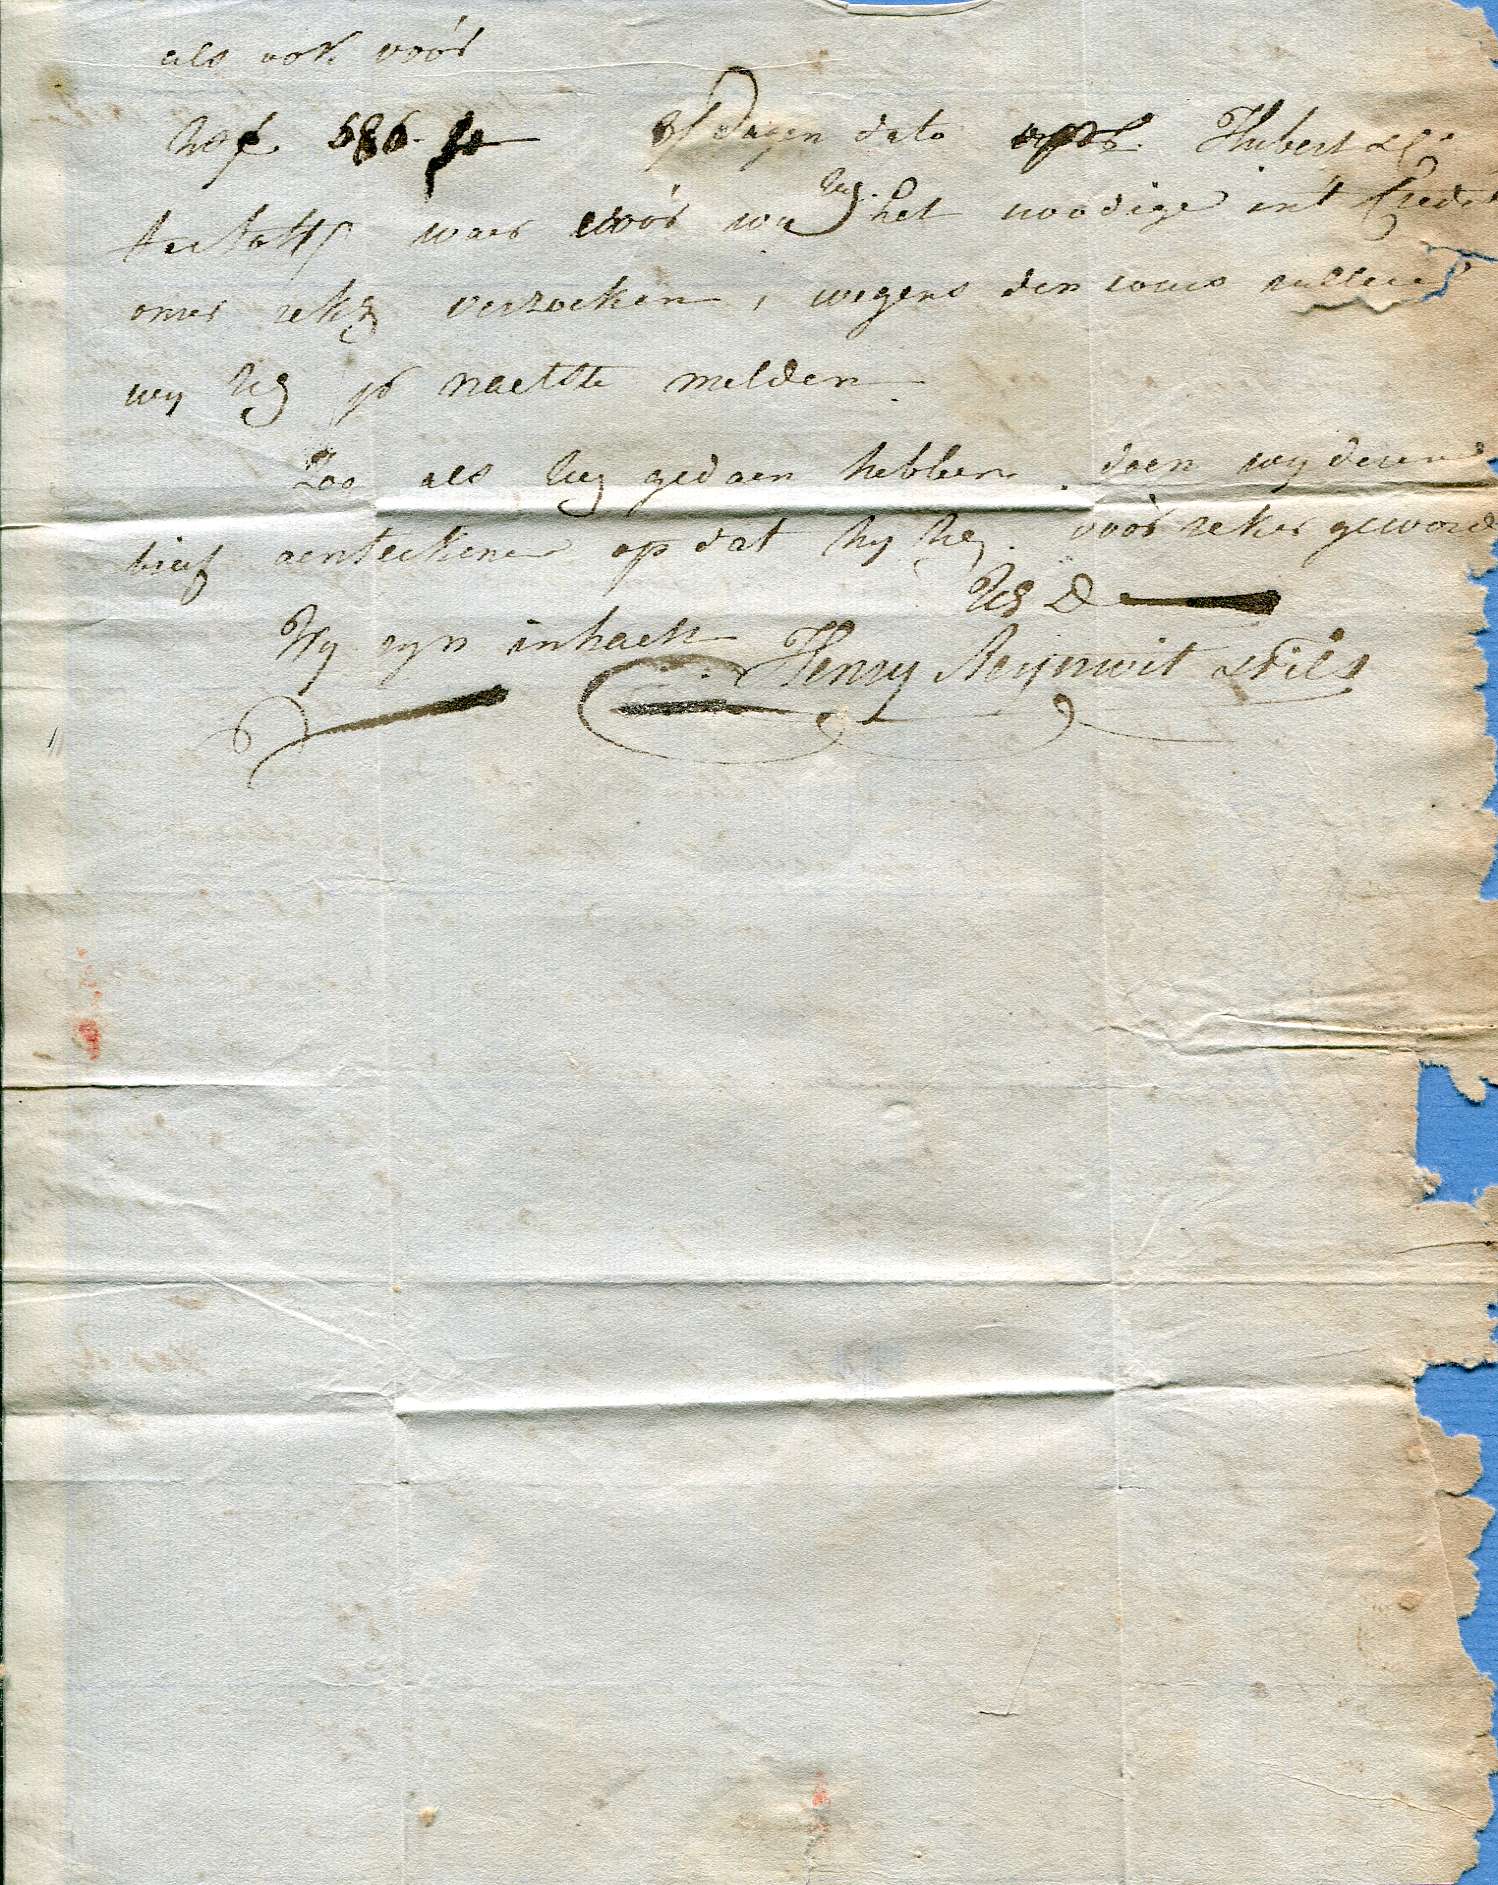 als ook vóór
686 dagen dato Hubert & C°
waer vóór wy het noodige in't Credit
onzer rekg verzoeken, wegens den cours zullen
wy UEd pr naeste melden
Zoo als UEd gedaen hebben, doen wy deezen
brief aenteekenen op dat hy UEd vóór zeker geword
UEd D
Wy zyn inhaelt
Henry Reijnwit & Fils